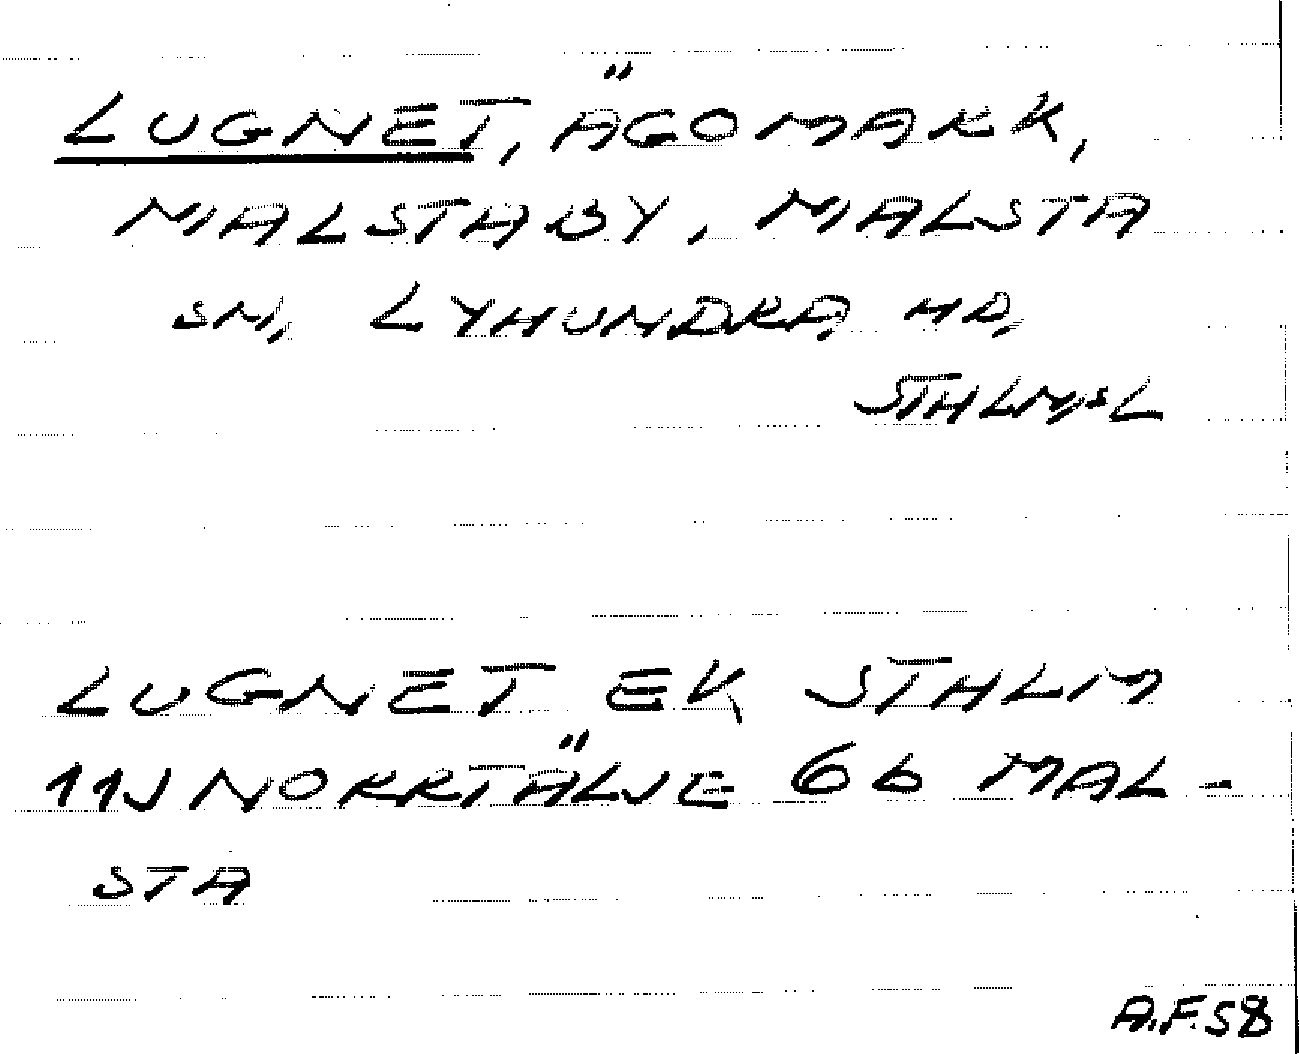 LUGNET, ÄGOMARK,
MALSTABY, MALSTA
SN, LYHUNDRA HD,
STHLMSL
LUGNET EK STHLM
11J NORRTÄLJE 6b MAL-
STA
A.F.58